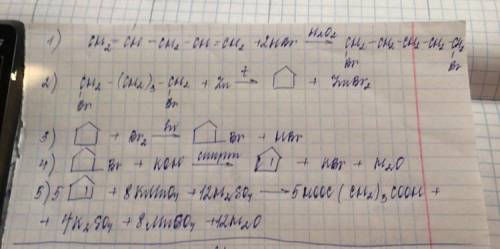 1) CH₂ - CH - CH₂ - CH = CH₂ + 2HBr H₂O₂→ CH₂ - CH₂ - CH₂ - CH₂ - CH₂
Br Br
2) CH₂ - (CH₂)₃ - CH₂ + Zn t→ + ZnBr₂
Br Br
3) + Br₂ hν→ Br + HBr
4) Br + KOH спирт→ + KBr + H₂O
5) 5 + 8KMnO₄ + 12H₂SO₄ → 5HOOC(CH₂)₃COOH +
+ 4K₂SO₄ + 8MnSO₄ + 12H₂O